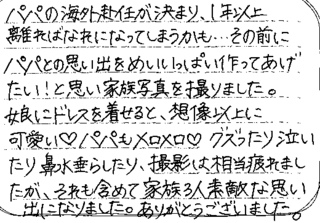 パパの海外赴任が決まり、1年以上
離ればなれになってしまうかも…その前に
パパとの思い出をめいいっぱい作ってあげ
たい!と思い家族写真を撮りました。
娘にドレスを着せると、想像以上に
可愛い♡パパもメロメロ♡グズったり泣い
たり鼻水垂らしたり、撮影は相当疲れまし
たが、それも含めて家族3人素敵な思い
出になりました。ありがとうございました。